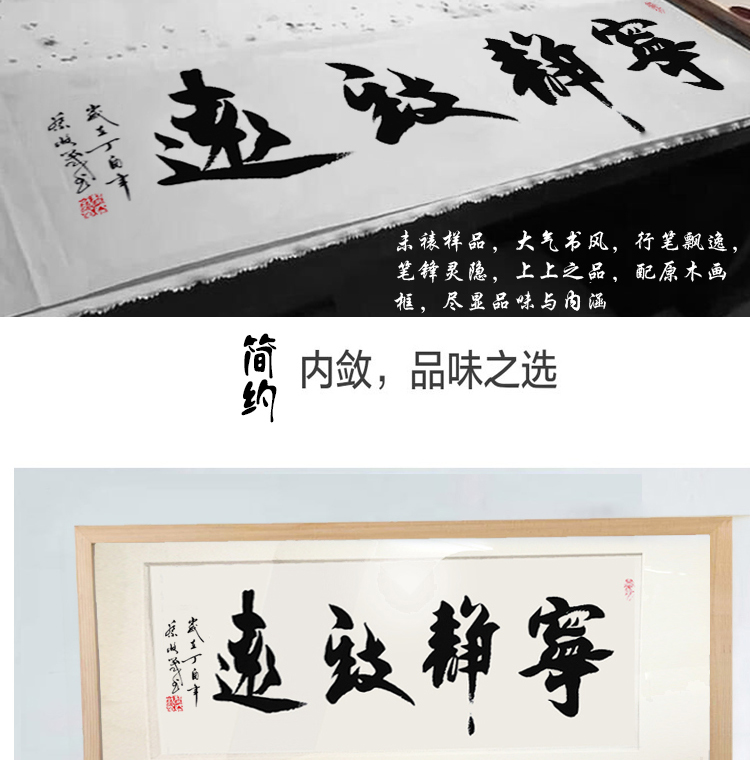 寧静致遠
歲在丁酉年
未裱样品，大气书风，行笔飘逸，
笔锋灵隐，上上之品，配原木画
框，尽显品味与内涵
简约
内敛，品味之选
寧静致遠
歲在丁酉年